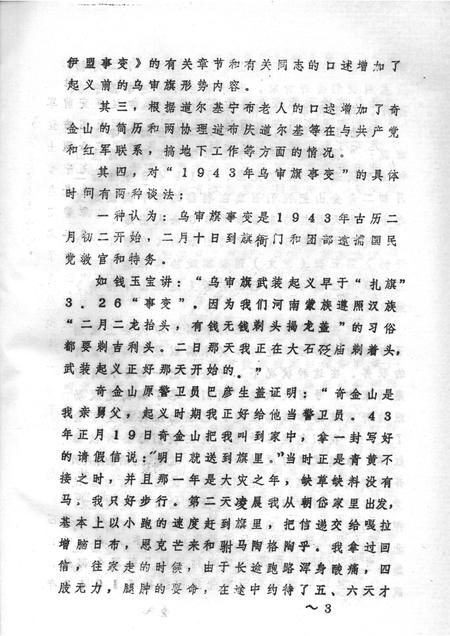 伊盟事变》的有关章节和有关同志的口述增加了
起义前的乌审旗形势内容。
其三，根据道尔基宁布老人的口述增加了奇
金山的简历和两协理道布庆道尔基等在与共产党
和红军联系，搞地下工作等方面的情况。
其四，对“1943年乌审旗事变”的具体
时间有两种谈法：
一种认为：乌审旗事变是1943年古历二
月初二开始，二月十日到旗衙门和团部逮捕国民
党教官和特务。
如钱玉宝讲：“乌审旗武装起义早于“扎旗”
3．26“事变”．因为我们河南蒙族遵照汉族
“二月二龙抬头，有钱无钱剃头揭龙盖”的习俗
都要剃吉利头。二日那天我正在大石砭庙剃着头，
武装起义正好那天开始的。”
奇金山原警卫员巴彦生盖证明：“奇金山是
我亲舅父，起义时期我正好给他当警卫员。43
年正月19日奇金山把我叫到家中，拿一封写好
的请假信说：“明日就送到旗里。”当时正是青黄不
接之时，并且那一年是大灾之年，缺草缺料没有
马，我只好步行。第二天凌晨我从朝岱家里出发，
基本上以小跑的速度赶到旗里，把信递交给嘎拉
增脑日布，恩克芒来和驸马陶格陶乎。我拿过回
信，往家走的时候，由于长途跑路浑身酸痛，四
肢无力，腿肿的要命，在途中约待了五、六天才
～3